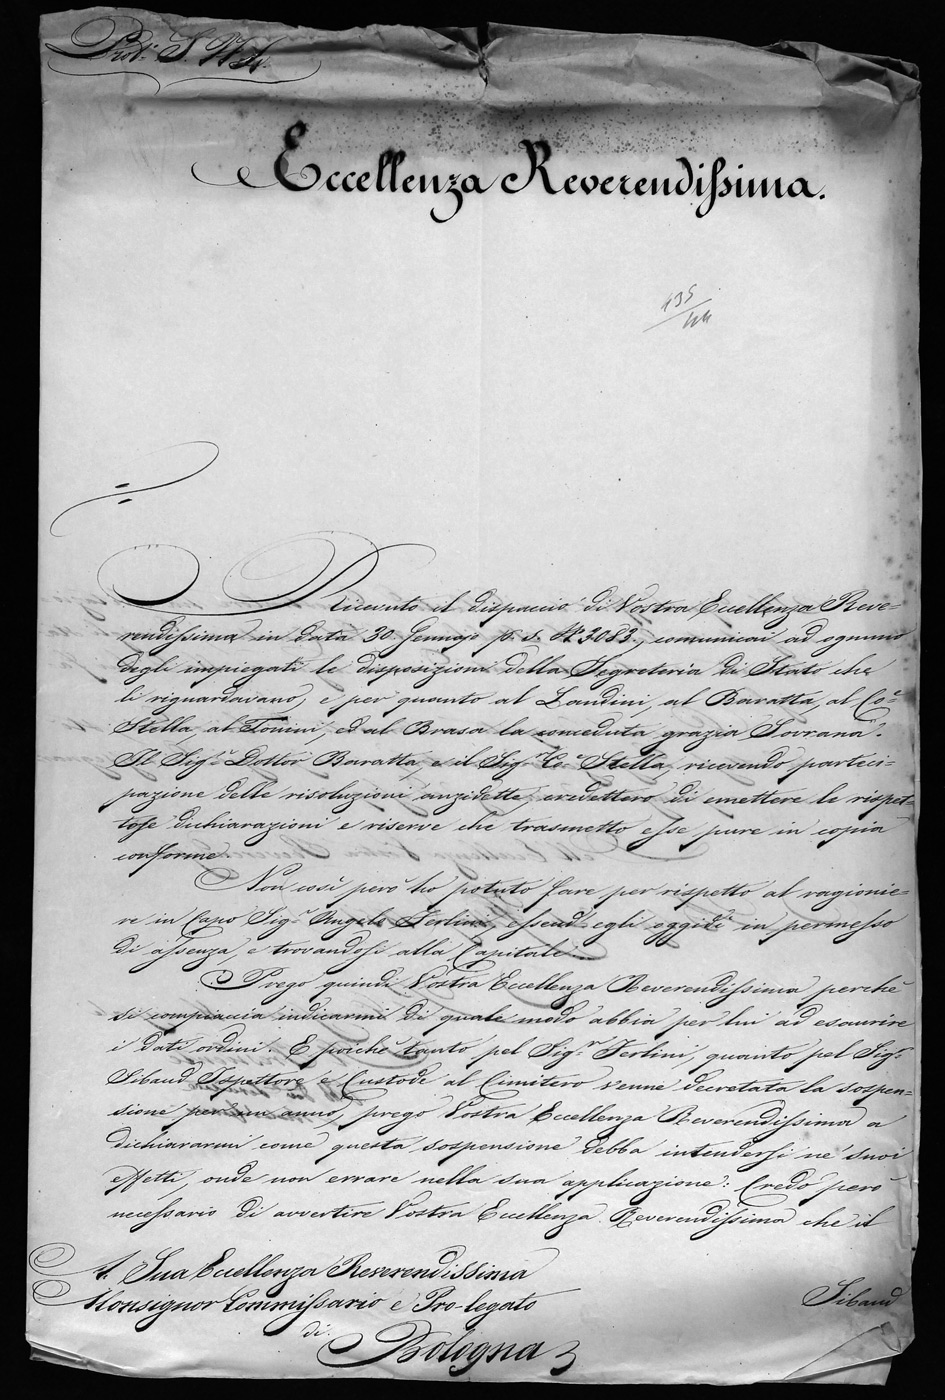 Eccellenza Reverendissima.
Ricevuto il dispaccio di Vostra Eccellenza Reve=
rendissima in data 30. Gennajo p. s. N. 3083., comunicai ad ognuno
degli impiegati le disposizioni della Segreteria di Stato che
li riguardavano, e per quanto al Landini, al Baratta, al Co:
Stella, al Tonini, ed al Brasa la conceduta grazia Sovrana.
Il Sig.r Dottor Baratta, e il Sig.r Co: Stella, ricevendo parteci=
pazione delle risoluzioni anzidette, credettero di emettere le rispet=
tose dichiarazioni e riserve che trasmetto esse pure in copia
conforme.
Non così però ho potuto fare per rispetto al ragionie=
re in Capo Sig.r Angelo Ferlini, essend. egli oggidì in permesso
di assenza, e trovandosi alla Capitale.
Prego quindi Vostra Eccellenza Reverendissima perchè
si compiaccia indicarmi di quale modo abbia per lui ad esaurire
i dati ordini. E poichè tanto pel Sig.r Ferlini, quanto pel Sig.r
Sibaud Ispettore e Custode al Cimitero venne decretata la sospen=
sione per un anno, prego Vostra Eccellenza Reverendissima a
dichiararmi come questa sospensione debba intendersi ne' suoi
effetti, onde non errare nella sua applicazione: Credo però
necessario di avvertire Vostra Eccellenza Reverendissima che il
A Sua Eccellenza Reverendissima
Monsignor Commissario e Pro-legato
di
Bologna
Sibaud